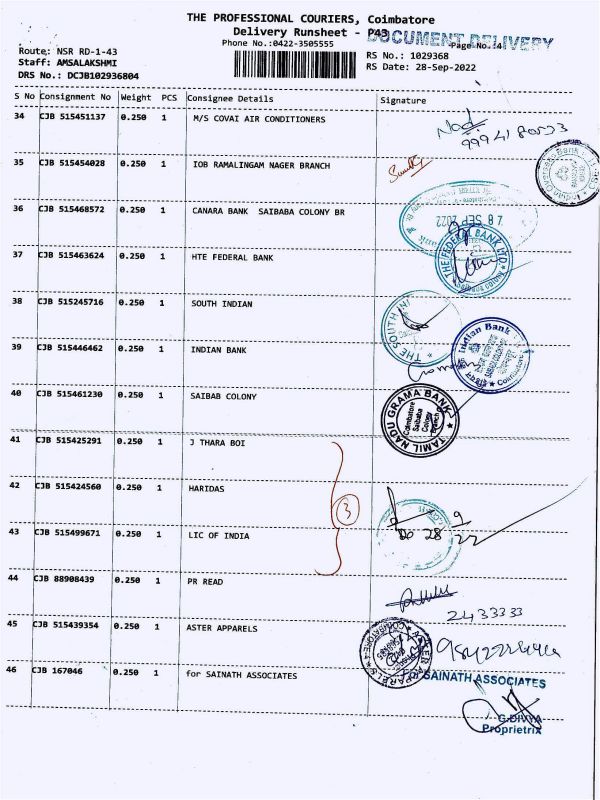 THE PROFESSIONAL COURIERS, Coimbatore
Delivery Runsheet - P43
DOCUMENT DELIVERY
Phone No.:0422-3505555
Page No.:4
Route: NSR RD-1-43
Staff: AMSALAKSHMI
DRS No.: DCJB102936804
RS No.: 1029368
RS Date: 28-Sep-2022
S No Consignment No Weight PCS Consignee Details Signature
34 CJB 515451137 0.250 1 M/S COVAI AIR CONDITIONERS
35 CJB 515454028 0.250 1 IOB RAMALINGAM NAGER BRANCH
36 CJB 515468572 0.250 1 CANARA BANK SAIBABA COLONY BR
28 SEP 2022
37 CJB 515463624 0.250 1 HTE FEDERAL BANK
THE FEDERAL BANK LTD.
38 CJB 515245716 0.250 1 SOUTH INDIAN
THE SOUTH IN
39 CJB 515446462 0.250 1 INDIAN BANK
Indian Bank
Coimbatore
40 CJB 515461230 0.250 1 SAIBAB COLONY
TAMIL NADU GRAMA BANK
Coimbatore
Saibaba
Colony
Branch
41 CJB 515425291 0.250 1 J THARA BOI
42 CJB 515424560 0.250 1 HARIDAS
3
43 CJB 515499671 0.250 1 LIC OF INDIA
28 9
22
44 CJB 88908439 0.250 1 PR READ
2433333
45 CJB 515439354 0.250 1 ASTER APPARELS
ASTER APPARELS
COIMBATORE
46 CJB 167046 0.250 1 for SAINATH ASSOCIATES
SAINATH ASSOCIATES
G.DIVYA
Proprietrix